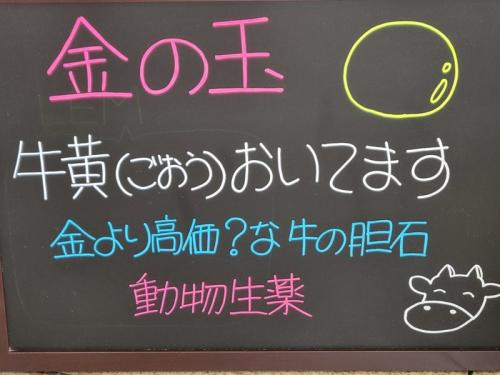 金の玉
牛黄(ごおう)おいてます
金より高価?な牛の胆石
動物生薬